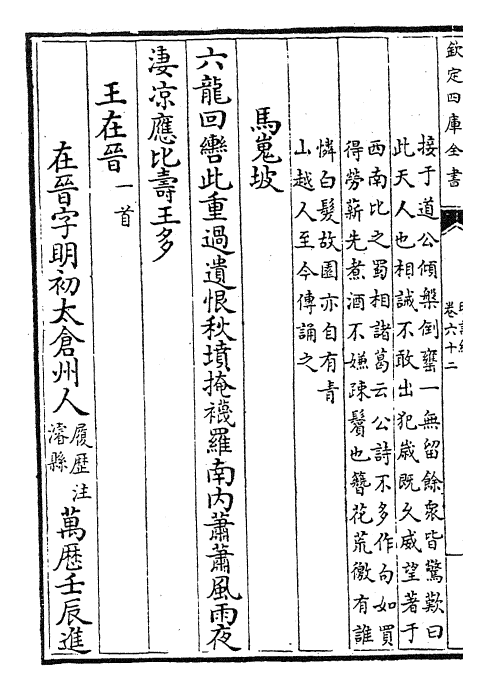 欽定四庫全書
卷六十二
接于道公傾槃倒罋一無留餘衆皆驚歎曰
此天人也相誡不敢出犯嵗既久威望著于
西南比之蜀相諸葛云公詩不多作句如買
得勞薪先煮酒不嫌疎鬢也簪花荒徼有誰
憐白髪故園亦自有青
山越人至今傳誦之
馬嵬坡
六龍回轡此重過遺恨秋墳掩襪羅南内蕭蕭風雨夜
淒凉應比壽王多
王在晉一首
在晉字明初太倉州人履歴注濬縣萬歴壬辰進